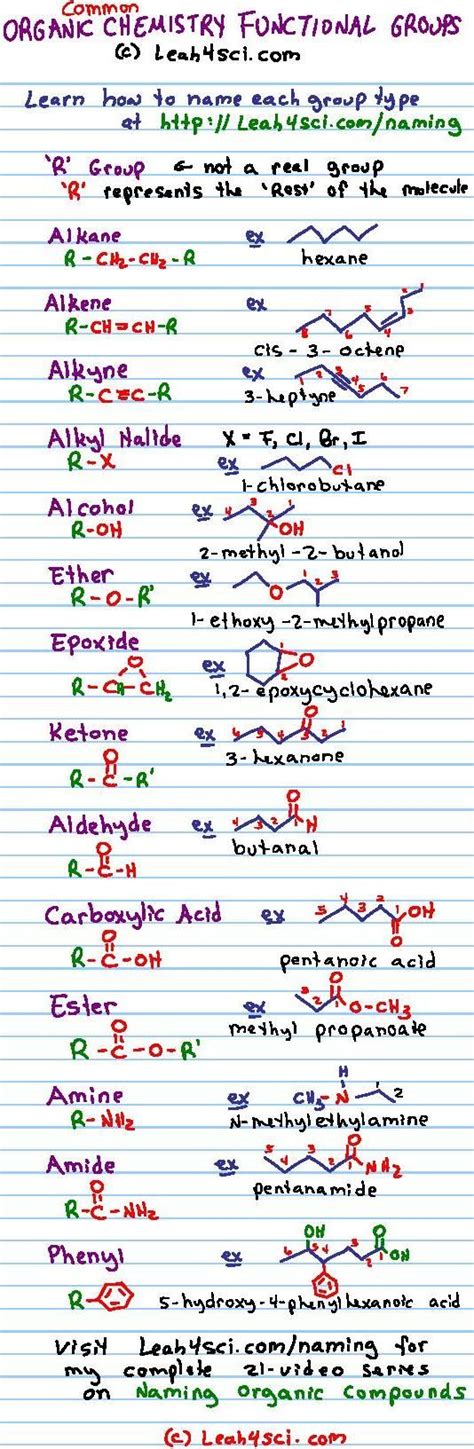 Common
ORGANIC CHEMISTRY FUNCTIONAL GROUPS
(c) Leah4sci.com
Learn how to name each group type
at http://Leah4sci.com/naming
'R' Group ← not a real group
'R' represents the 'Rest' of the molecule
Alkane ex
R-CH₂-CH₂-R hexane
Alkene ex 1 2 3 4 5 6 7 8
R-CH=CH-R
cis-3-octene
Alkyne ex 1 2 3 7
R-C≡C-R 3-heptyne
Alkyl Halide X = F, Cl, Br, I
R-X ex Cl
1-chlorobutane
Alcohol ex 4 3 2 1
R-OH OH
2-methyl-2-butanol
Ether ex O 1 2 3
R-O-R'
1-ethoxy-2-methylpropane
Epoxide ex 1 2 O
O
R-CH-CH₂ 1,2-epoxycyclohexane
Ketone ex O 6 5 4 3 2 1
O 3-hexanone
R-C-R'
Aldehyde ex 4 3 2 1 O H
O butanal
R-C-H
Carboxylic Acid ex 5 4 3 2 1 OH
O O
R-C-OH pentanoic acid
Ester ex 3 2 1 O O-CH₃
O methyl propanoate
R-C-O-R'
Amine ex H CH₃-N 1 2
R-NH₂ N-methylethylamine
Amide ex 5 4 3 2 1 O NH₂
O pentanamide
R-C-NH₂
Phenyl ex OH 6 5 4 3 2 1 O OH
R- 5-hydroxy-4-phenylhexanoic acid
Visit Leah4sci.com/naming for
my complete 21-video series
on Naming Organic Compounds
(c) Leah4sci.com